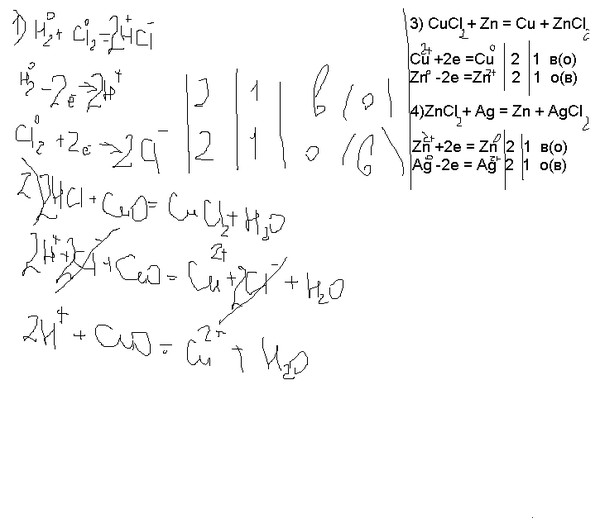 1) H₂⁰ + Cl₂⁰ = 2H⁺Cl⁻
H₂⁰ - 2e → 2H⁺ | 2 | 1 | в (о)
Cl₂⁰ + 2e → 2Cl⁻ | 2 | 1 | о (в)
2) 2HCl + CuO = CuCl₂ + H₂O
2H⁺ + 2Cl⁻ + CuO = Cu²⁺ + 2Cl⁻ + H₂O
2H⁺ + CuO = Cu²⁺ + H₂O
3) CuCl₂ + Zn = Cu + ZnCl₂
Cu²⁺ +2e =Cu⁰ | 2 | 1 в(о)
Zn⁰ -2e =Zn²⁺ | 2 | 1 о(в)
4)ZnCl₂ + Ag = Zn + AgCl₂
Zn²⁺ +2e = Zn⁰ | 2 | 1 в(о)
Ag⁰ -2e = Ag²⁺ | 2 | 1 о(в)